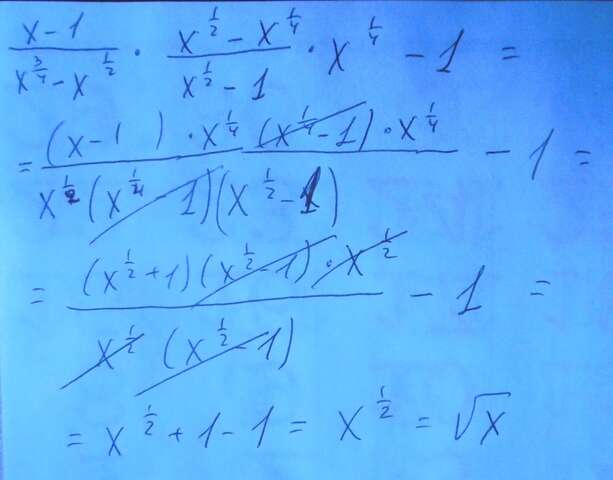 \frac{x-1}{x^{\frac{3}{4}}-x^{\frac{1}{2}}} \cdot \frac{x^{\frac{1}{2}}-x^{\frac{1}{4}}}{x^{\frac{1}{2}}-1} \cdot x^{\frac{1}{4}} - 1 =
= \frac{(x-1) \cdot x^{\frac{1}{4}} (x^{\frac{1}{4}}-1) \cdot x^{\frac{1}{4}}}{x^{\frac{1}{2}} (x^{\frac{1}{4}}-1)(x^{\frac{1}{2}}-1)} - 1 =
= \frac{(x^{\frac{1}{2}}+1)(x^{\frac{1}{2}}-1) \cdot x^{\frac{1}{2}}}{x^{\frac{1}{2}} (x^{\frac{1}{2}}-1)} - 1 =
= x^{\frac{1}{2}} + 1 - 1 = x^{\frac{1}{2}} = \sqrt{x}